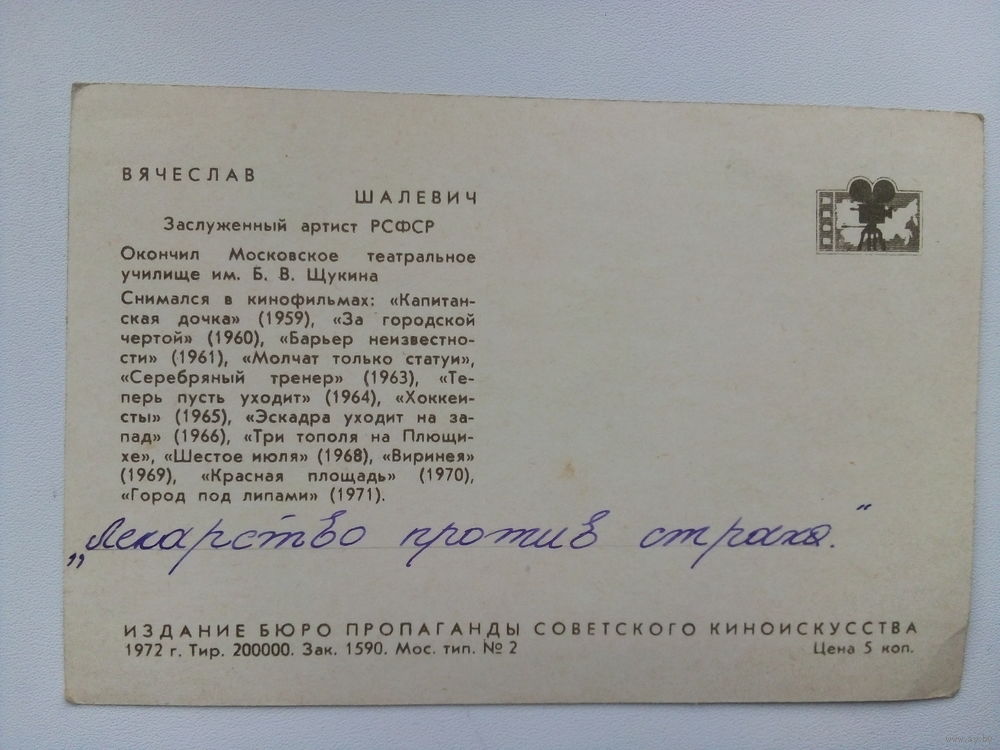 ВЯЧЕСЛАВ
ШАЛЕВИЧ
Заслуженный артист РСФСР
Окончил Московское театральное
училище им. Б. В. Щукина
Снимался в кинофильмах: «Капитан-
ская дочка» (1959), «За городской
чертой» (1960), «Барьер неизвестно-
сти» (1961), «Молчат только статуи»,
«Серебряный тренер» (1963), «Те-
перь пусть уходит» (1964), «Хоккеи-
сты» (1965), «Эскадра уходит на за-
пад» (1966), «Три тополя на Плющи-
хе», «Шестое июля» (1968), «Виринея»
(1969), «Красная площадь» (1970),
«Город под липами» (1971).
„Лекарство против страха.“
ИЗДАНИЕ БЮРО ПРОПАГАНДЫ СОВЕТСКОГО КИНОИСКУССТВА
1972 г. Тир. 200000. Зак. 1590. Мос. тип. № 2 Цена 5 коп.